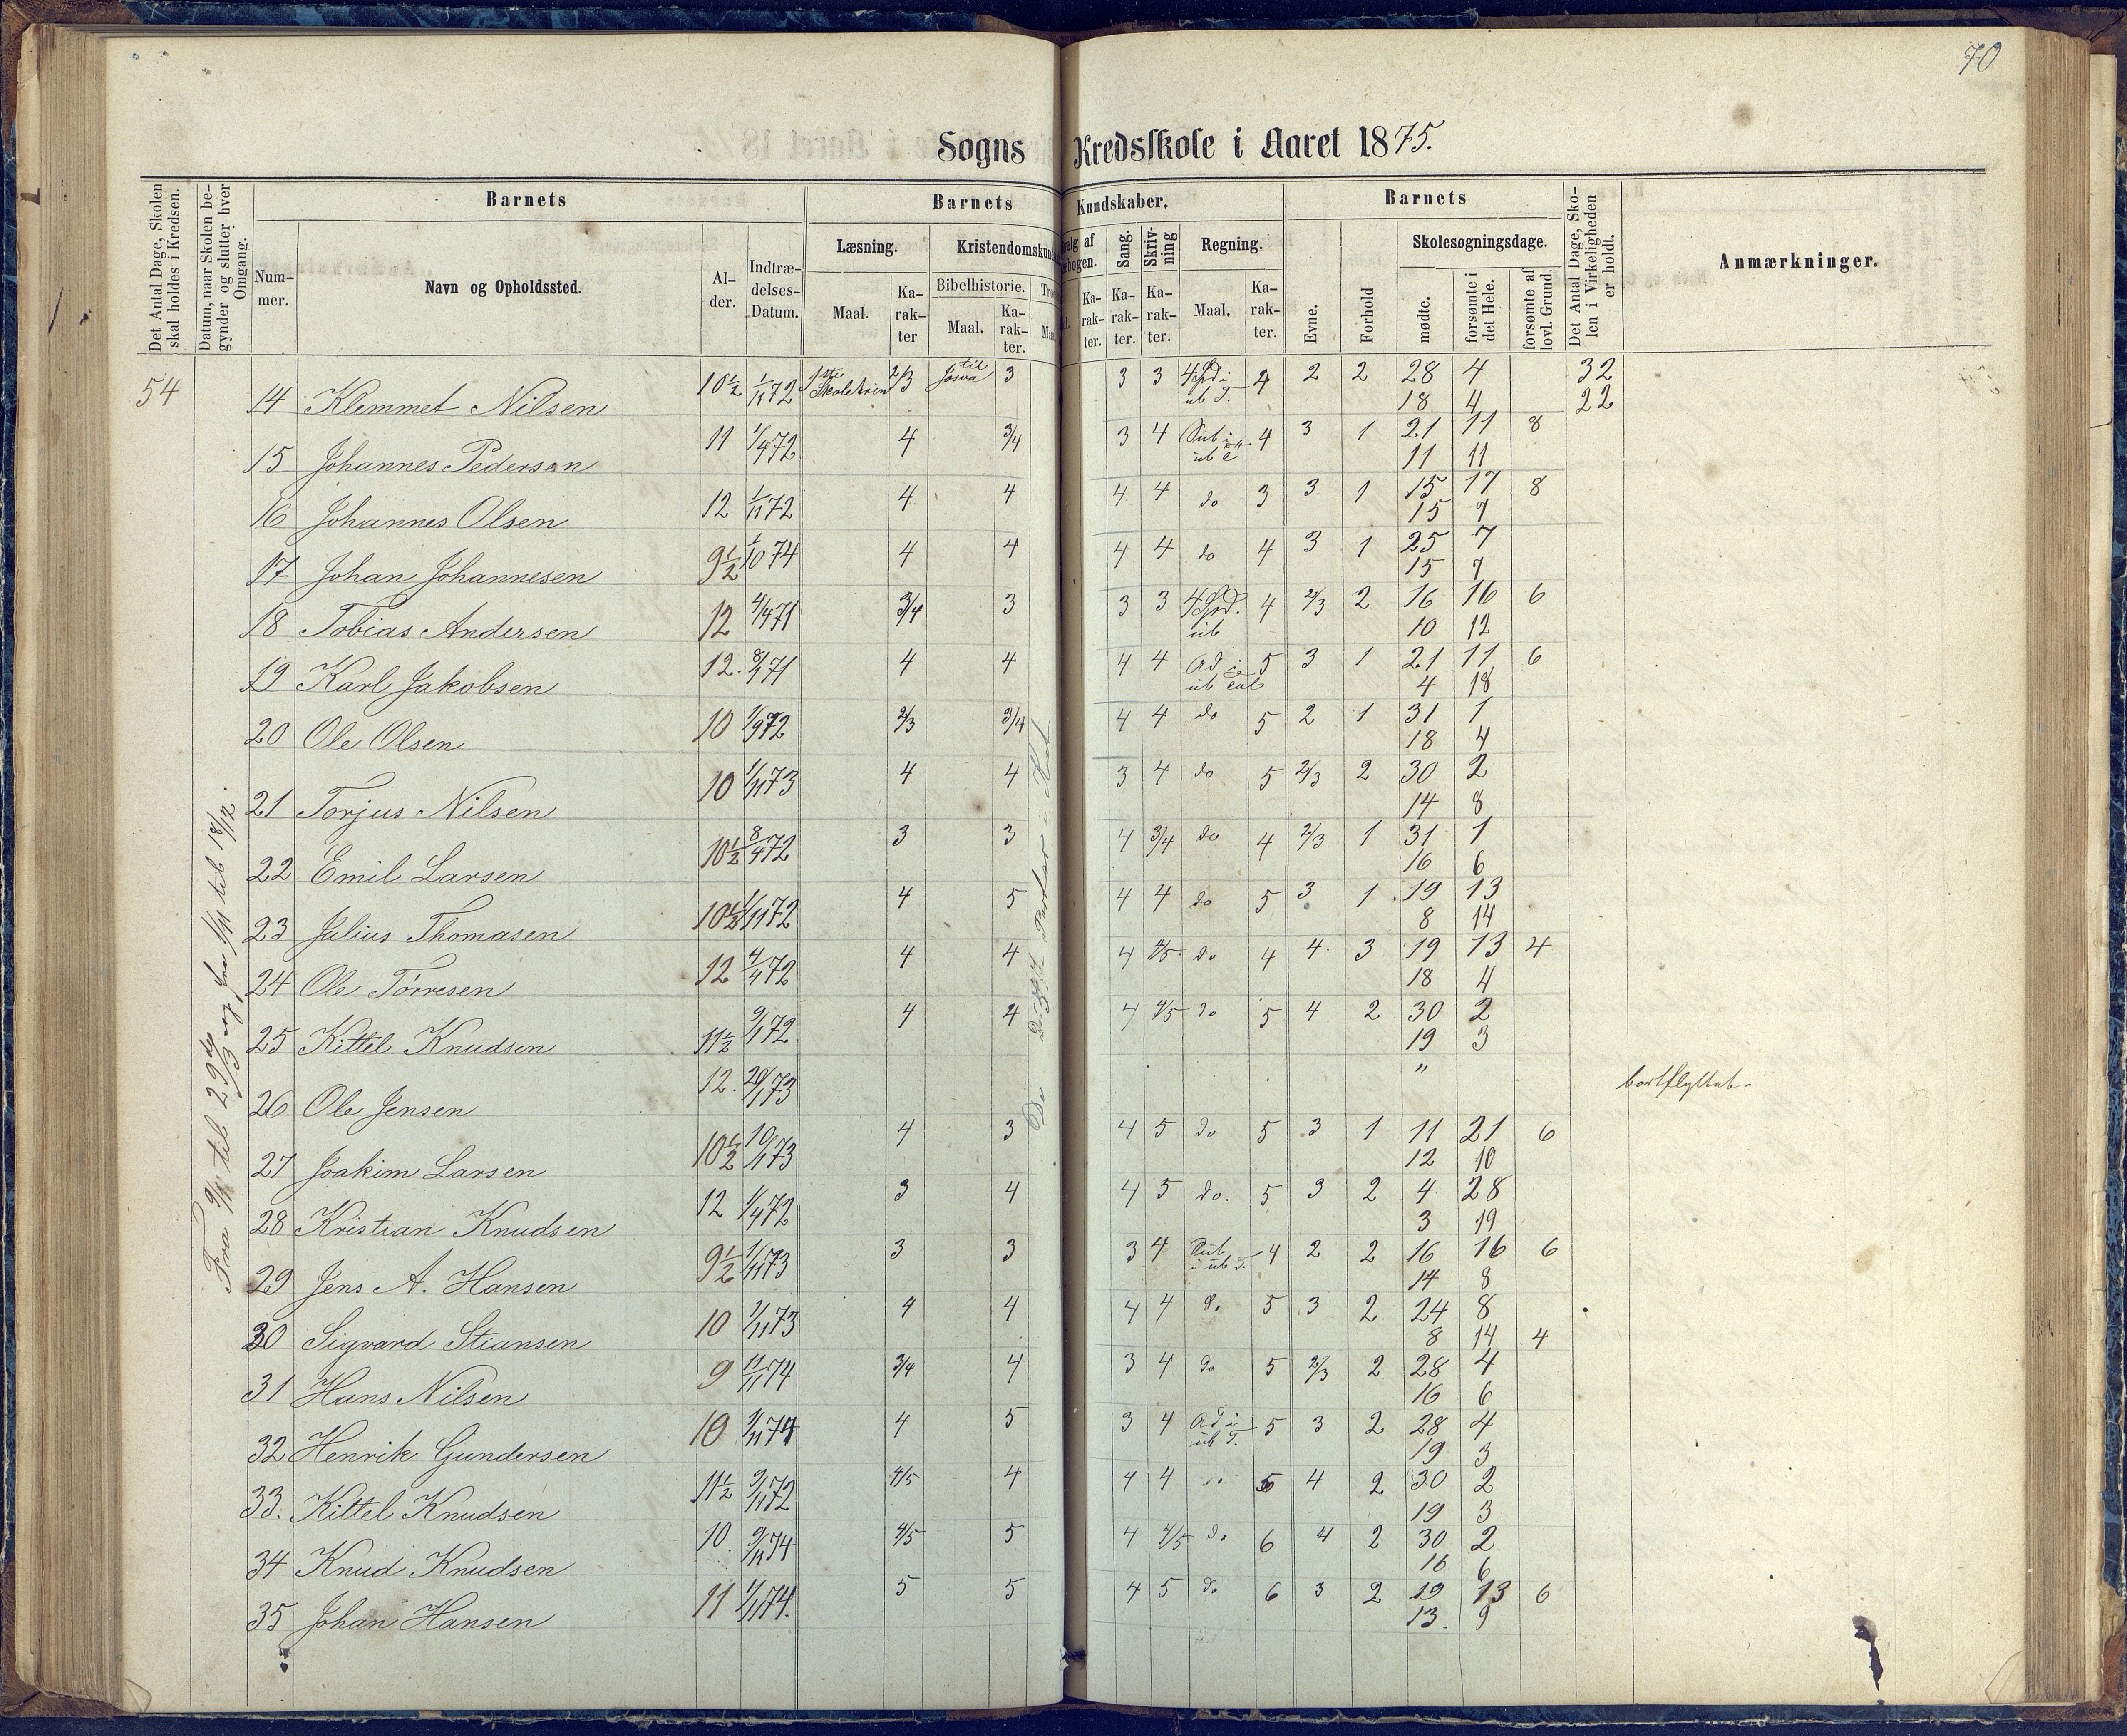 70
Sogns Kredsskole i Aaret 1875.
Det Antal Dage, Skolen skal holdes i Kredsen.
Datum, naar Skolen begynder og slutter hver Omgang.
Barnets
Nummer.
Navn og Opholdssted.
Alder.
Indtrædelses-Datum.
Barnets Kundskaber.
Læsning.
Maal.
Karakter
Kristendomskun
Bibelhistorie.
Maal.
Karakter.
Tro
Maa
alg af
ebogen.
Karakter.
Sang.
Karakter.
Skrivning
Karakter.
Regning.
Maal.
Karakter.
Barnets
Evne.
Forhold
Skolesøgningsdage.
mødte.
forsømte i det Hele.
forsømte af lovl. Grund.
Det Antal Dage, Skolen i Virkeligheden er holdt.
Anmærkninger.
54
Fra 9/11 til 23de/3 og fra 1/11 til 18/12.
14 Klemmet Nilsen 10½ 1/11 72 1ste Skoletrin 2/3 til Josva 3 3 3 4 Spd i ub T. 4 2 2 28 4 32
18 4 22
15 Johannes Pedersen 11 1/4 72 4 3/4 3 4 Sub i 4 3 1 21 11 8
11 11
16 Johannes Olsen 12 1/11 72 4 4 4 4 do 3 3 1 15 17 8
15 7
17 Johan Johannesen 9½ 1/10 74 4 4 4 4 do 4 3 1 25 7
15 7
18 Tobias Andersen 12 4/4 71 3/4 3 3 3 4 Spd. ub 4 2/3 2 16 16 6
10 12
19 Karl Jakobsen 12. 8/1 71 4 4 4 4 Ad i ub 5 3 1 21 11 6
4 18
20 Ole Olsen 10 1/9 72 2/3 3/4 4 4 do 5 2 1 31 1
18 4
21 Torjus Nilsen 10 1/11 73 4 4 3 4 do 5 2/3 2 30 2
14 8
22 Emil Larsen 10½ 8/4 72 3 3 4 3/4 do 4 2/3 1 31 1
16 6
23 Julius Thomasen 10½ 1/11 72 4 5 4 4 do 5 3 1 19 13
8 14
24 Ole Törresen 12 4/4 72 4 4 4 4/5 do 4 4 3 19 13 4
18 4
25 Kittel Knudsen 11½ 9/1 72 4 4 4 4/5 do 5 4 2 30 2
19 3
26 Ole Jensen 12. 20/1 73 " bortflyttet
27 Joakim Larsen 10½ 10/1 73 4 3 4 5 do 5 3 1 11 21 6
12 10
28 Kristian Knudsen 12 1/4 72 3 4 4 5 do. 5 3 2 4 28
3 19
29 Jens A. Hansen 9½ 1/11 73 3 3 3 4 Sub i ub T. 4 2 2 16 16 6
14 8
30 Sigvard Stiansen 10 1/11 73 4 4 4 4 do 5 3 2 24 8
8 14 4
31 Hans Nilsen 9 11/11 74 3/4 4 3 4 do 5 2/3 2 28 4
16 6
32 Henrik Gundersen 10 9/11 74 4 5 3 4 Ad i ub T. 5 3 2 28 4
19 3
33. Kittel Knudsen 11½ 9/11 72 4/5 4 4 4 do 5 4 2 30 2
19 3
34 Knud Knudsen 10 9/11 74 4/5 5 4 4/5 do 6 4 2 30 2
16 6
35 Johan Hansen 11 1/1 74. 5 5 4 5 do 6 3 2 19 13 6
13. 9